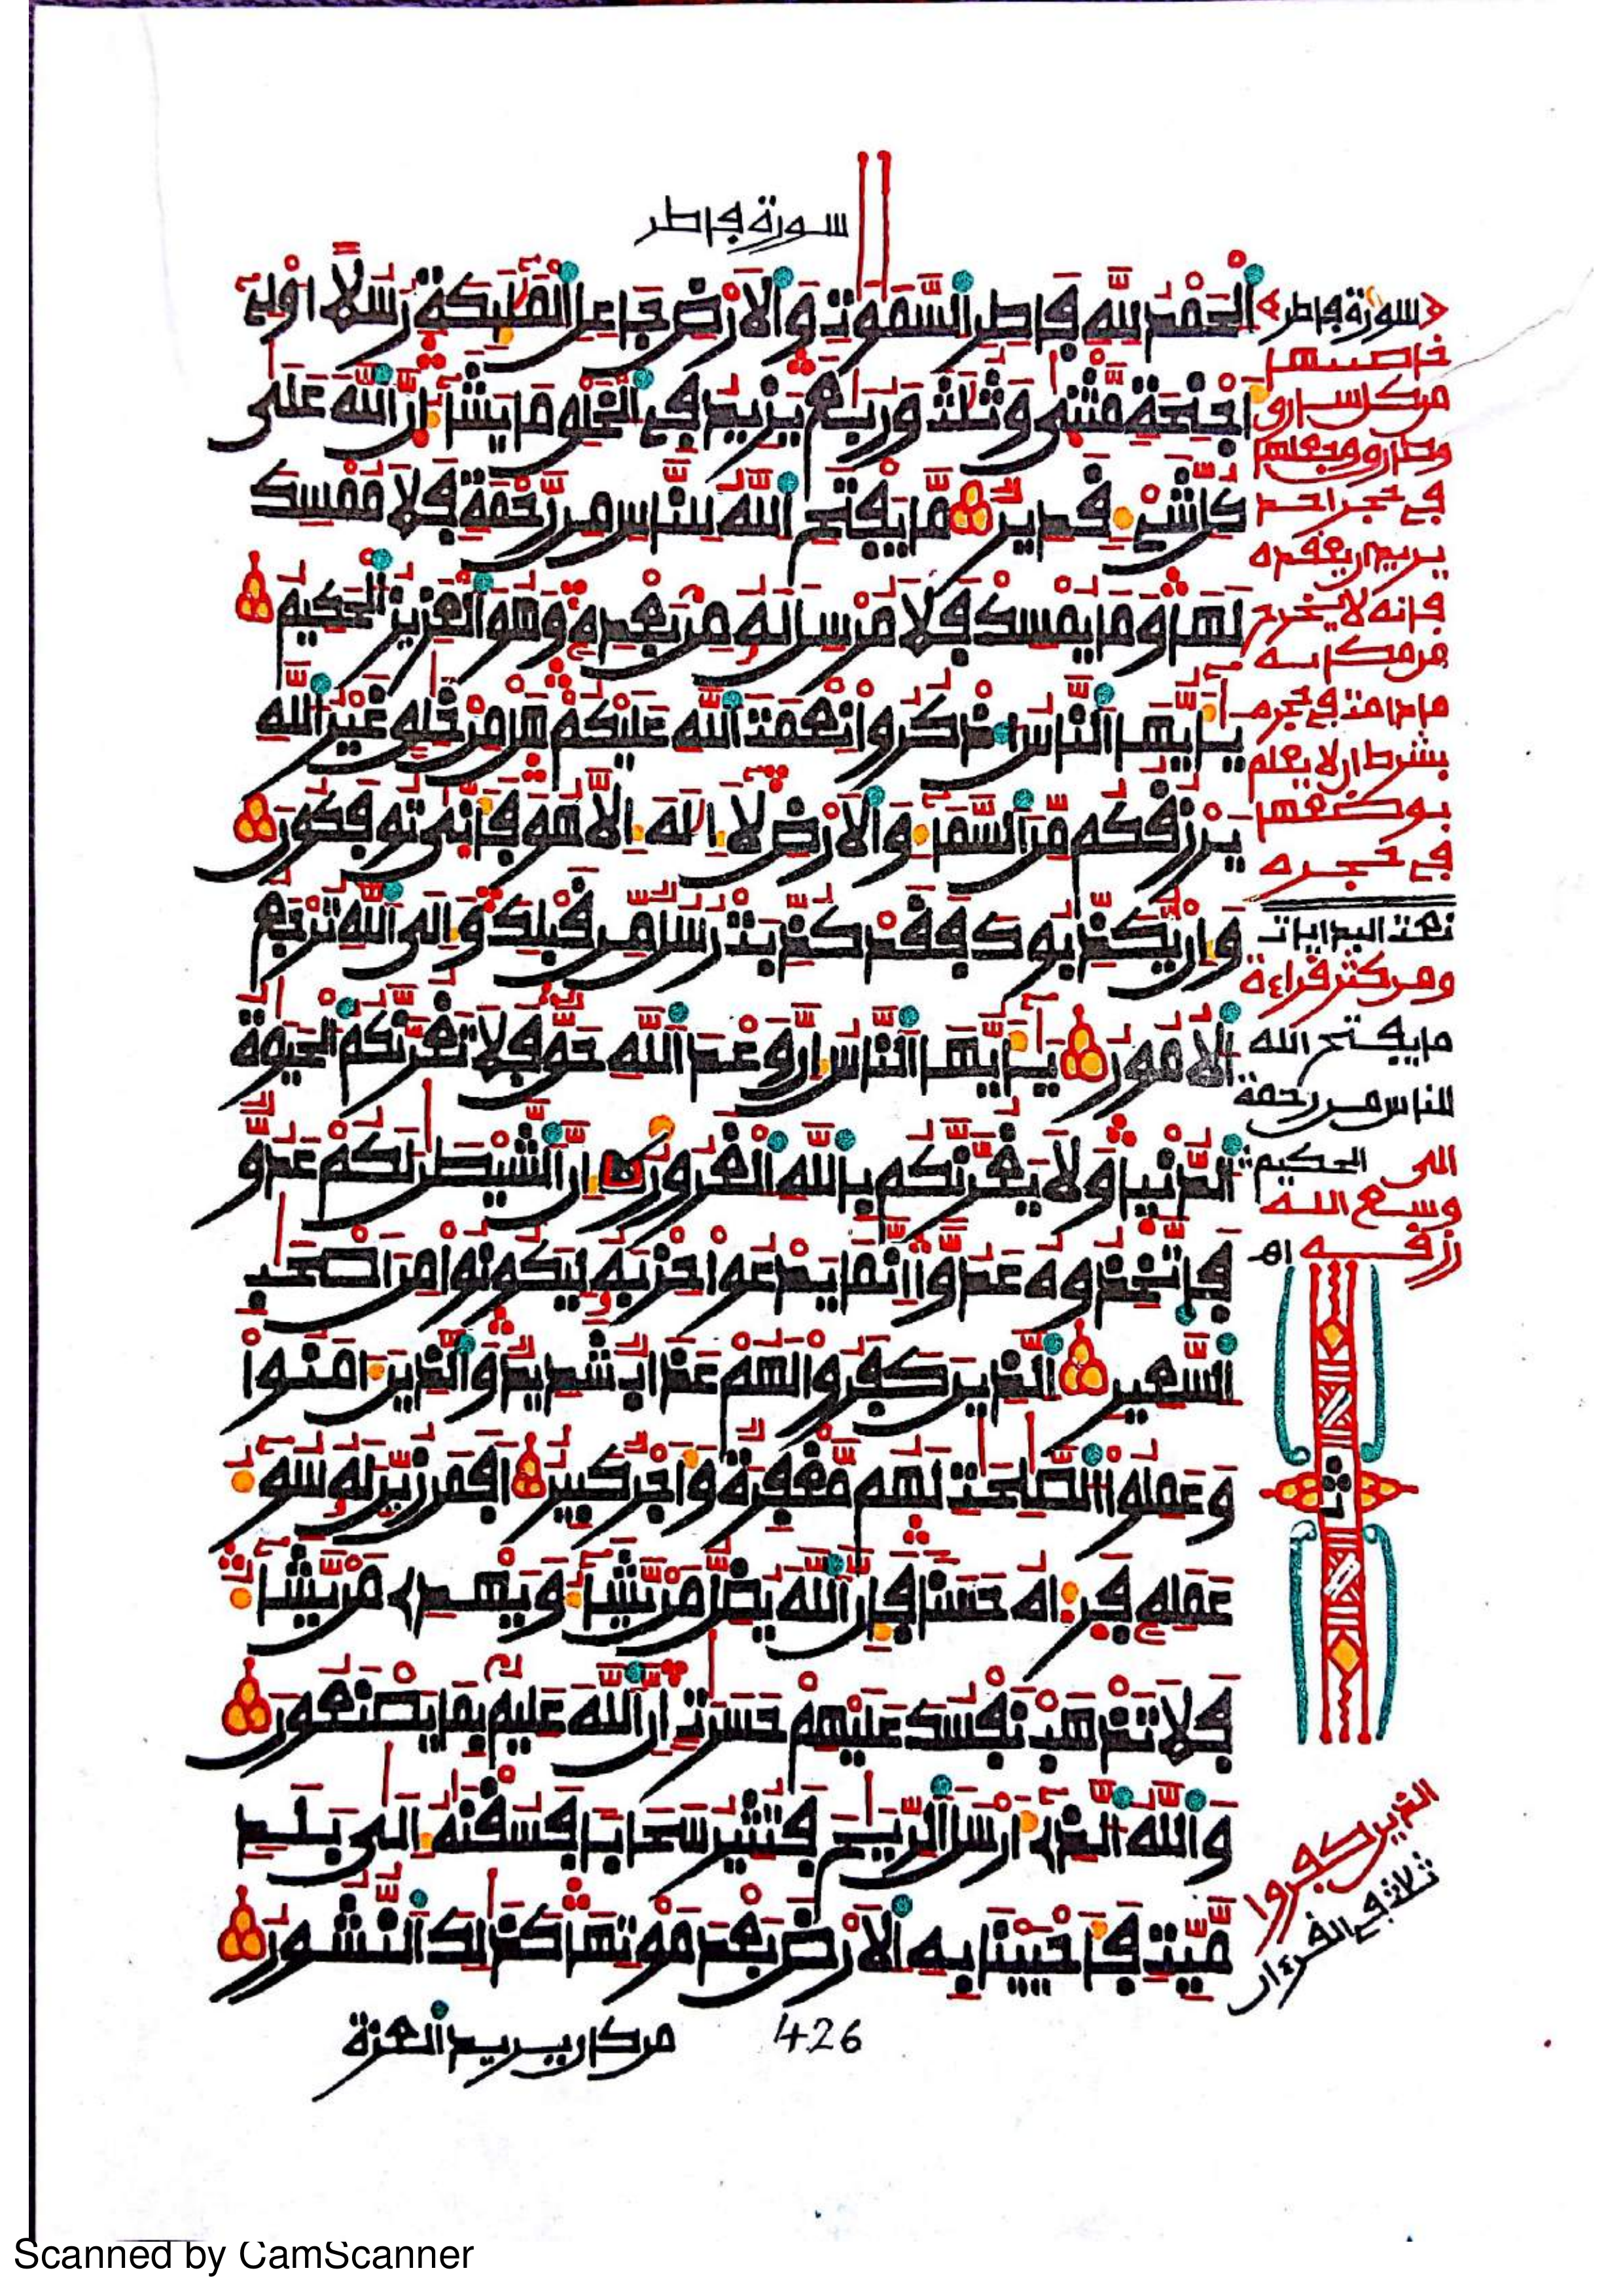 سورة فاطر
الحمد لله فاطر السموت والارض جاعل المليكة رسلا اولى
اجنحة مثنى وثلث وربع يزيد في الخلو ما يشا ان الله على
كل شى قدير ما يفتح الله للناس من رحمة فلا ممسك
لها وما يمسك فلا مرسل له من بعده وهو العزيز الحكيم
يايها الناس اذكروا نعمت الله عليكم هل من خلو غير الله
يرزفكم من السما والارض لا اله الا هو فانى توفكون
وان يكذبوك ففد كذبت رسل من فبلك والى الله ترجع
الامور يايها الناس ان وعد الله حو فلا تغرنكم الحيوة
الدنيا ولا يغرنكم بالله الغرور ان الشيطن لكم عدو
فاتخذوه عدوا انما يدعوا حزبه ليكونوا من اصحب
السعير الذين كفروا لهم عذاب شديد والذين امنوا
وعملوا الصلحت لهم مغفرة واجر كبير افمن زين له سو
عمله فراه حسنا فان الله يضل من يشا ويهدى من يشا
فلا تذهب نفسك عليهم حسرت ان الله عليم بما يصنعون
والله الذى ارسل الريح فتثير سحابا فسفنه الى بلد
ميت فاحيينا به الارض بعد موتها كذلك النشور
426
من كان يريد العزة
سورة فاطر
خاصيتها
في حجر احد
فانه لا يخرج
ما دامت في حجره
بشرط ان لا يعلم
بوضعها
في حجره
نعت البدايات
ومن كثر فراءة
ما يفتح الله
للناس من رحمة
الى الحكيم
وسع الله
رزفه اهـ
الذين كفروا
ثلاث في الفرءان
Scanned by CamScanner